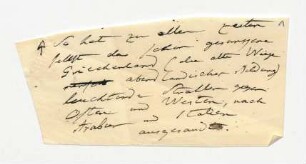 So hat zu allen Zeiten
selbst das schon gesunkene
Griechenland (die alte Wiege
abendländischer Bildung)
leuchtende Strallen gegen
Osten und Westen, nach
Arabien und Italien
ausgesandt.